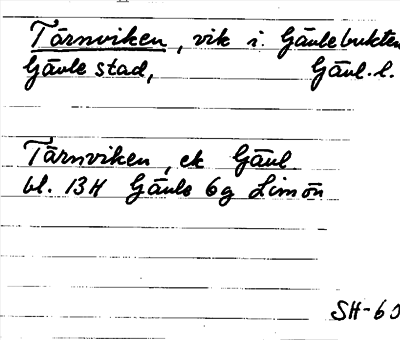 Tärnviken, vik i Gävlebukten
Gävle stad, Gävl. l.
Tärnviken, ek Gävl.
bl. 13H Gävle 6g Limön
SH-60